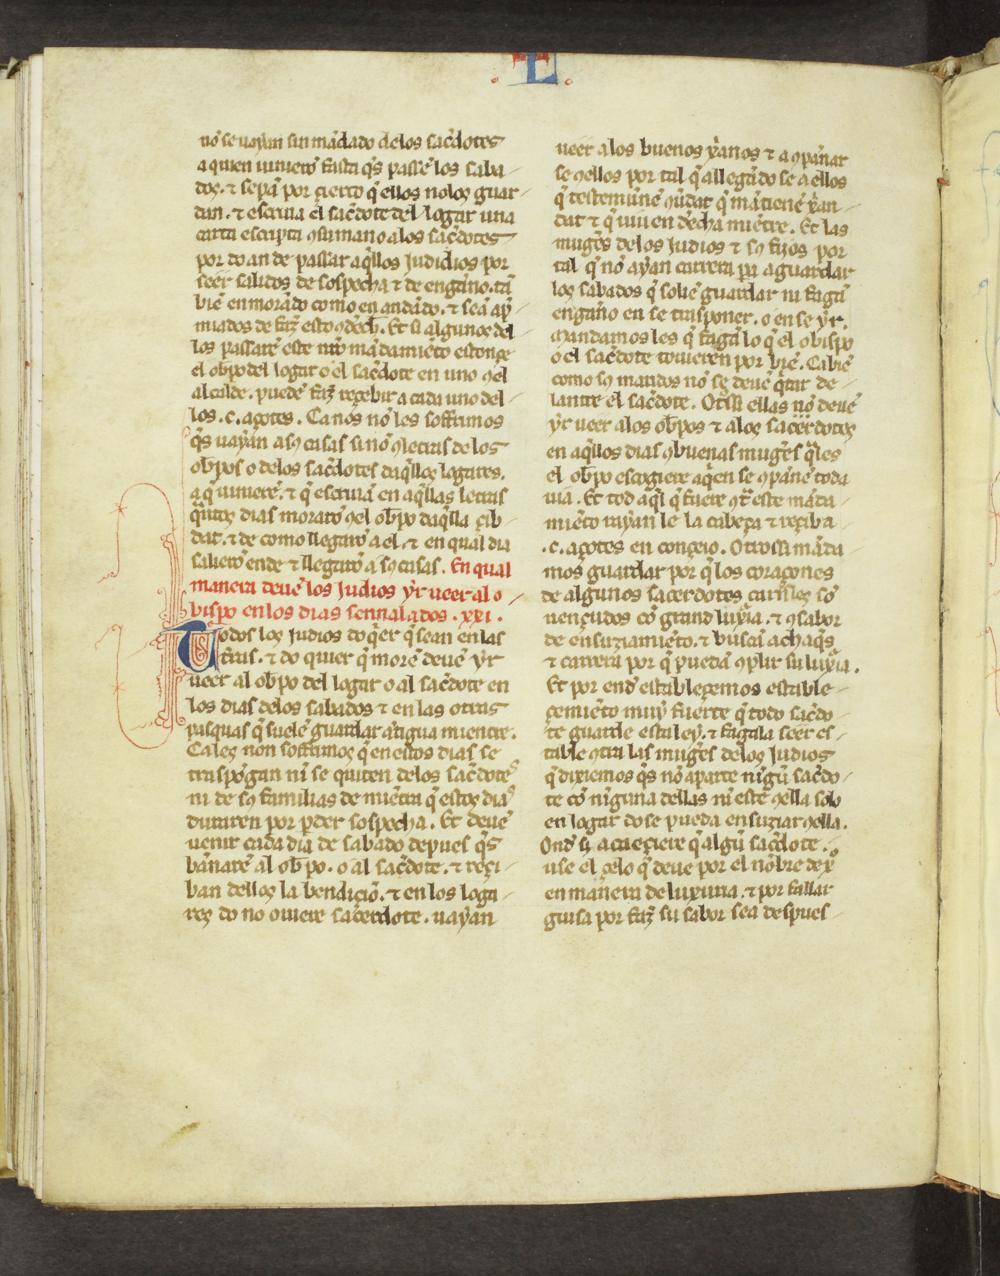 E
nõ se uayan sin mãdado delos sac̃dotes
a quien uiniero᷑ fasta q̃s passe᷑ los saba
dos. ⁊ sepã por çierto q̃ ellos nolos guar
dan. ⁊ escriua el sac̃dote del logar una
carta escripta ꝯsu mano alos sac̃dotes
por do an de passar aq̃llos judidios por
seer salidos de sospecha ⁊ de engãno. tã
biẽ en morãdo como en andãdo. ⁊ seã ap̃
miados de faz̃ esto ꝯdech̃. Et si alguno del
los passare este nr̃o mãdamiẽto estonçe
el obp̃o del logar o el sac̃dote en uno ꝯel
alcalde. puedẽ faz̃ reçebir a cada uno del
los .c. açotes. Ca nos nõ les soffrimos
q̃s uayan a sꝯ casas sinõ ꝯ letras de los
obp̃os o delos sac̃dotes daq̃llos logares.
a q̃ uiniere᷑. ⁊ q̃ escriuã en aq̃llas letras
q̃ntos dias morarõ ꝯel obp̃o daq̃lla çib
dat. ⁊ de como llegarõ a el. ⁊ en qual dia
salierõ ende ⁊ llegarõ a sꝯ casas. En qual
manera deuẽ los judios yr ueer al o
bispo en los dias sennalados .xxi.
Todos los judios do q̃er q̃ sean en las
tr̃ras. ⁊ do quier q̃ morẽ deuẽ yr
ueer al obp̃o del logar o al sac̃dote en
los dias delos sabados ⁊ en las otras
pasquas q̃ suelẽ guardar ãtigua mientre.
Ca les non soffrimos q̃ en estos dias se
traspõgan ni se quiten delos sac̃dotes
ni de sꝯ familias de miẽtra q̃ estos dias
duraren por p̱der sospecha. Et deuẽ
uenir cada dia de sabado depues q̃s
bãnarẽ al obp̃o. o al sac̃dote. ⁊ reçi
ban dellos la bendiçiõ. ⁊ en los loga
res do no ouiere sacerdote. uayan
ueer alos buenos xp̃anos ⁊ acõpãnar
se ꝯellos por tal q̃ allegãdo se a ellos
q̃ testemũnẽ ꝯ̃dat q̃ mãtienẽ xp̃an
dat ⁊ q̃ uiuen dr̃cha miẽtre. Et las
mugr̃s de los judios ⁊ sꝯ fijos por
tal q̃ nõ ayan carrera p̱a aguardar
los sabados q̃ soliẽ guardar ni fagã
engãno en se trasponer. o en se yr.
mandamos les q̃ fagã lo q̃ el obispo
o el sac̃dote touieren por biẽ. Ca biẽ
como sꝯ maridos nõ se deuẽ q̃tar de
lantre el sac̃dote. Otrossi ellas nõ deuẽ
yr ueer alos obp̃os ⁊ alos sacerdotes
en aq̃llos dias ꝯ buenas mugr̃s q̃les
el obp̃o escogiere aq̃en se ꝯpãnẽ toda
uia. Et tod aq̃l q̃ fuere ꝯtr̃ este mãda
miẽto rayan le la cabeça ⁊ reçiba
.c. açotes en conçeio. Otrossi mãda
mos guardar por q̃ los coraçones
de algunos sacerdotes carnles sõ
uençudos cõ grand luxr̃ia. ⁊ ꝯ sabor
de ensuziamiẽto. ⁊ buscã achaq̃s
⁊ carrera por q̃ puedã ꝯplir su luxr̃ia.
Et por end establecemos estable
çemiẽto muy fuerte q̃ todo sac̃do
te guarde esta ley. ⁊ fagala seer es
table ꝯtra las mugr̃s delos judios
q̃ dixiemos q̃s nõ aparte nigũ sac̃do
te cõ niguna dellas ni estẽ ꝯella solo
en logar do se pueda ensuziar ꝯella.
Ond si acaeçiere q̃ algũ sac̃dote
use el çelo q̃ deue por el nõbre de xp̃o
en manera de luxuria. ⁊ por fallar
guisa por faz̃ su sabor sea despues